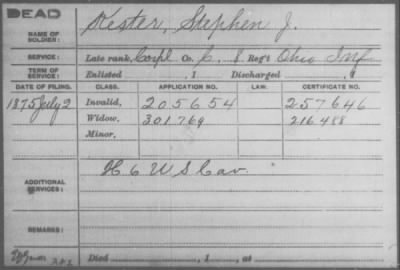 DEAD
NAME OF SOLDIER: Kester, Stephen J.
SERVICE: Late rank, Corpl Co. C. 8 Reg't Ohio Inf
TERM OF SERVICE: Enlisted , 1 Discharged , 1
DATE OF FILING. CLASS. APPLICATION NO. LAW. CERTIFICATE NO.
1875 July 2 Invalid, 205654 257646
Widow, 301769 216488
Minor,
ADDITIONAL SERVICES: H 6 U S Cav.
REMARKS:
Died , 1 , at